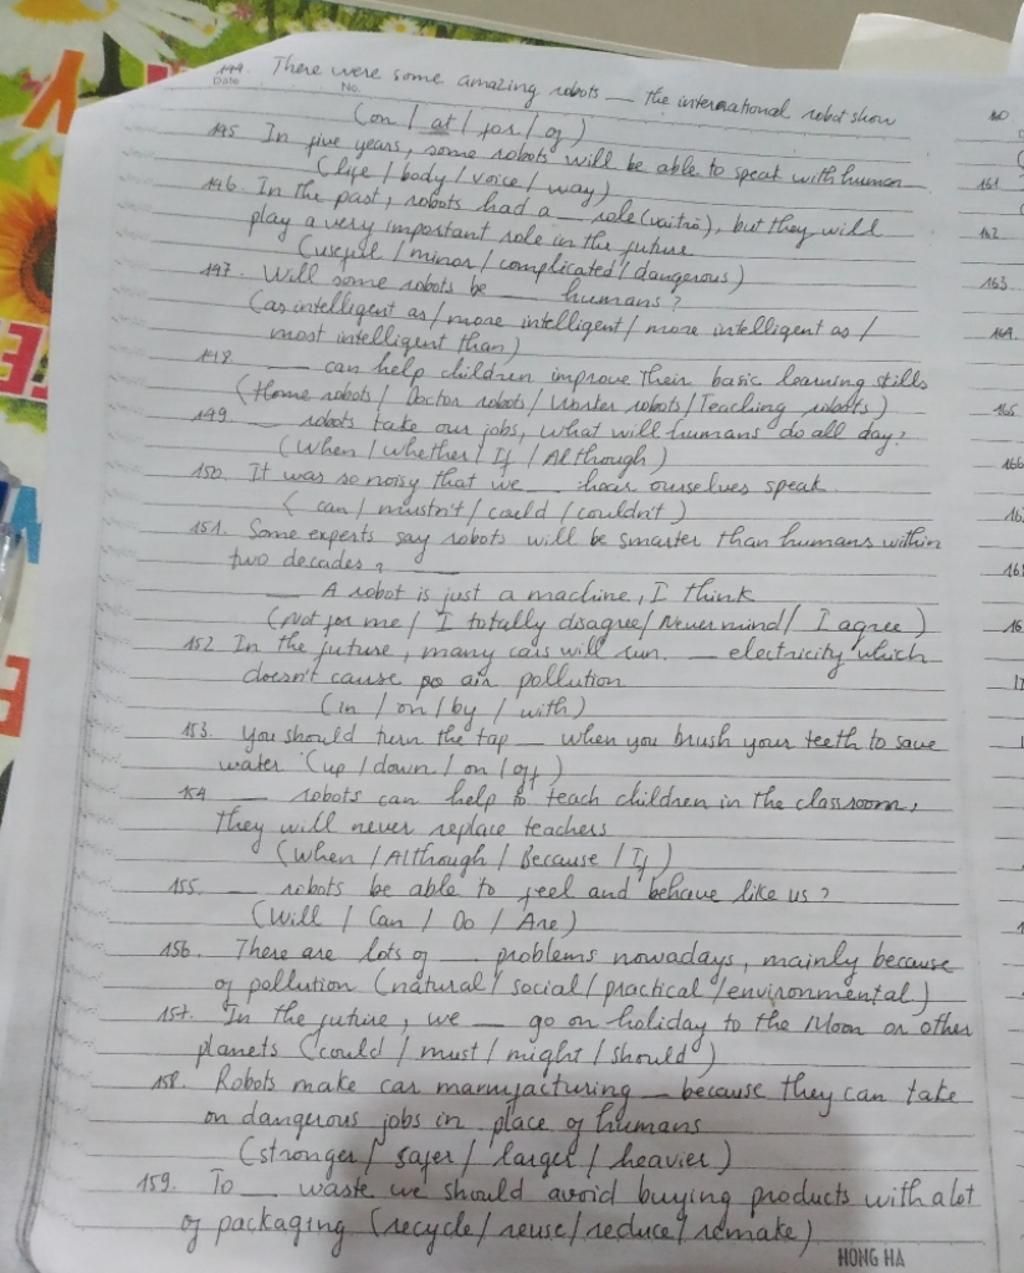 144. There were some amazing robots __ the international robot show
Date No.
(on / at / for / of)
145 In five years, some robots will be able to speak with human __
(life / body / voice / way)
146. In the past, robots had a __ role (vai trò), but they will
play a very important role in the future
(useful / minor / complicated / dangerous)
147. Will some robots be __ humans?
(as intelligent as / more intelligent / more intelligent as /
most intelligent than)
148. __ can help children improve their basic learning skills
(Home robots / Doctor robots / Worker robots / Teaching robots)
149. __ robots take our jobs, what will humans do all day?
(When / whether / If / Although)
150. It was so noisy that we __ hear ourselves speak
(can / mustn't / could / couldn't)
151. Some experts say robots will be smarter than humans within
two decades? __
__ A robot is just a machine, I think
(Not for me / I totally disagree / Never mind / I agree)
152 In the future, many cars will run __ electricity which
doesn't cause air pollution
(in / on / by / with)
153. You should turn the tap __ when you brush your teeth to save
water (up / down / on / off)
154 __ robots can help to teach children in the classroom,
they will never replace teachers
(When / Although / Because / If)
155. __ robots be able to feel and behave like us?
(Will / Can / Do / Are)
156. There are lots of __ problems nowadays, mainly because
of pollution (natural / social / practical / environmental)
157. In the future, we __ go on holiday to the Moon or other
planets (could / must / might / should)
158. Robots make car manufacturing __ because they can take
on dangerous jobs in place of humans
(stronger / safer / larger / heavier)
159. To __ waste we should avoid buying products with a lot
of packaging (recycle / reuse / reduce / remake)
HONG HA
161
162
163
164.
165
166